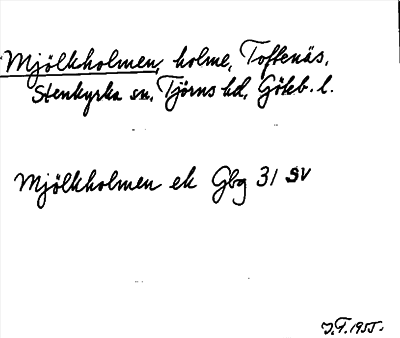 Mjölkholmen, holme, Toftenäs,
Stenkyrka sn, Tjörns hd, Göteb. l.
Mjölkholmen ek Gbg 31 SV
J.T. 1955.